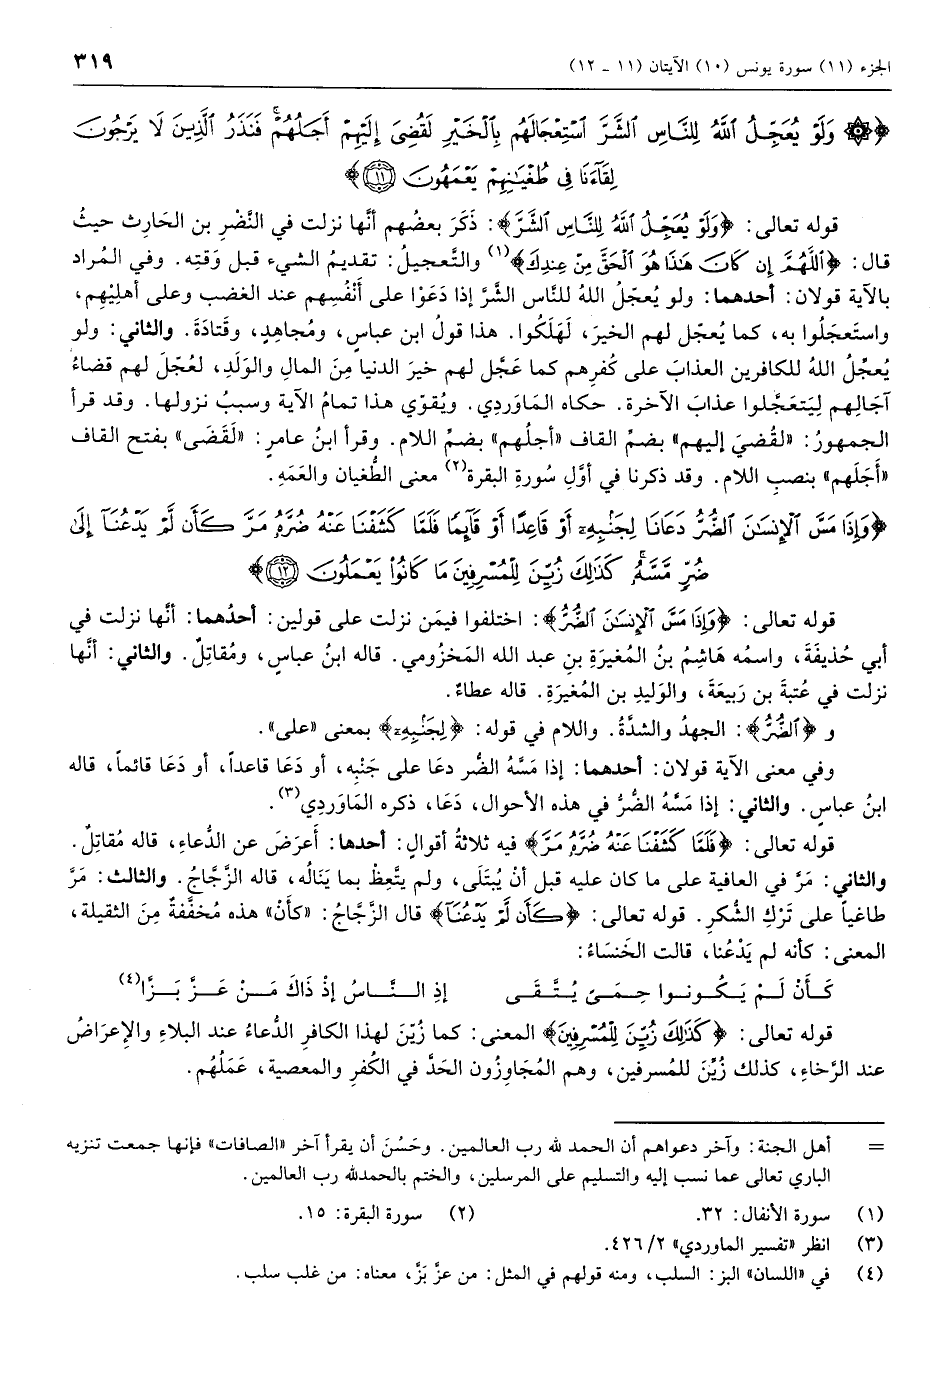 الجزء (١١) سورة يونس (١٠) الآيتان (١١ - ١٢) ٣١٩
﴿۞ وَلَوْ يُعَجِّلُ ٱللَّهُ لِلنَّاسِ ٱلشَّرَّ ٱسْتِعْجَالَهُم بِٱلْخَيْرِ لَقُضِىَ إِلَيْهِمْ أَجَلُهُمْ ۖ فَنَذَرُ ٱلَّذِينَ لَا يَرْجُونَ
لِقَآءَنَا فِى طُغْيَـٰنِهِمْ يَعْمَهُونَ ﴿١١﴾﴾
قوله تعالى: ﴿وَلَوْ يُعَجِّلُ ٱللَّهُ لِلنَّاسِ ٱلشَّرَّ﴾: ذَكَرَ بعضُهم أنَّها نزلت في النَّضْرِ بن الحَارث حيثُ
قال: ﴿ٱللَّهُمَّ إِن كَانَ هَـٰذَا هُوَ ٱلْحَقَّ مِنْ عِندِكَ﴾(١) والتَّعجيلُ: تقديمُ الشيء قبل وَقتِه. وفي المُراد
بالآية قولان: أحدهما: ولو يُعجّلُ اللهُ للنَّاس الشرَّ إذا دَعَوْا على أَنْفُسِهم عند الغضب وعلى أهليِهِم،
واستَعجَلُوا به، كما يُعجّل لهم الخيرَ، لَهَلَكُوا. هذا قولُ ابن عباسٍ، ومُجاهدٍ، وقَتادَةَ. والثاني: ولو
يُعجّلُ اللهُ للكافرين العذابَ على كُفرِهم كما عَجَّل لهم خيرَ الدنيا مِنَ المالِ والوَلَدِ، لعُجّلَ لهم قضاءُ
آجَالِهم لِيَتَعَجَّلوا عذابَ الآخرة. حكاه المَاوَردي. ويُقوّي هذا تمامُ الآية وسببُ نزولها. وقد قرأ
الجمهورُ: «لقُضيَ إليهم» بضمِّ القاف «أجلُهم» بضمّ اللام. وقرأ ابنُ عامرٍ: «لَقَضَى» بفتح القاف
«أَجَلَهم» بنصبِ اللام. وقد ذكرنا في أوَّلِ سُورةِ البقرة(٢) معنى الطُّغيان والعَمَهِ.
﴿وَإِذَا مَسَّ ٱلْإِنسَـٰنَ ٱلضُّرُّ دَعَانَا لِجَنۢبِهِۦٓ أَوْ قَاعِدًا أَوْ قَآئِمًا فَلَمَّا كَشَفْنَا عَنْهُ ضُرَّهُۥ مَرَّ كَأَن لَّمْ يَدْعُنَآ إِلَىٰ
ضُرٍّ مَّسَّهُۥ ۚ كَذَٰلِكَ زُيِّنَ لِلْمُسْرِفِينَ مَا كَانُوا۟ يَعْمَلُونَ ﴿١٢﴾﴾
قوله تعالى: ﴿وَإِذَا مَسَّ ٱلْإِنسَـٰنَ ٱلضُّرُّ﴾: اختلفوا فيمَن نزلت على قولين: أحدُهما: أنَّها نزلت في
أبي حُذيفَةَ، واسمُه هَاشِمُ بنُ المُغيرَةِ بنِ عبد الله المَخزُومي. قاله ابنُ عباس، ومُقاتِلٌ. والثاني: أنَّها
نزلت في عُتبةَ بن رَبيعَةَ، والوَليدِ بن المُغيرَةِ. قاله عطاءٌ.
و ﴿ٱلضُّرُّ﴾: الجهدُ والشدَّةُ. واللام في قوله: ﴿لِجَنۢبِهِۦٓ﴾ بمعنى «على».
وفي معنى الآية قولان: أحدهما: إذا مَسَّهُ الضُر دعَا على جَنْبِه، أو دَعَا قاعداً، أو دَعَا قائماً، قاله
ابنُ عباسٍ. والثاني: إذا مَسَّهُ الضُرُّ في هذه الأحوال، دَعَا، ذكره المَاوَردِي(٣).
قوله تعالى: ﴿فَلَمَّا كَشَفْنَا عَنْهُ ضُرَّهُۥ مَرَّ﴾ فيه ثلاثةُ أقوالٍ: أحدها: أَعرَضَ عن الدُّعاءِ، قاله مُقاتِلٌ.
والثاني: مَرَّ في العافية على ما كان عليه قبل أنْ يُبتَلَى، ولم يتَّعِظْ بما يَنَالُه، قاله الزَّجّاجُ. والثالث: مَرَّ
طاغياً على تَرْكِ الشُّكرِ. قوله تعالى: ﴿كَأَن لَّمْ يَدْعُنَآ﴾ قال الزَّجاجُ: «كأنْ» هذه مُخفَّفةٌ مِنَ الثقيلة،
المعنى: كأنه لم يَدْعُنا، قالت الخَنسَاءُ:
كَـأَنْ لَـمْ يَـكُـونـوا حِـمَـىً يُـتَّـقَـى إذِ الـنَّـاسُ إذْ ذَاكَ مَـنْ عَـزَّ بَـزَّا(٤)
قوله تعالى: ﴿كَذَٰلِكَ زُيِّنَ لِلْمُسْرِفِينَ﴾ المعنى: كما زُيّنَ لهذا الكافرِ الدُّعاءُ عند البلاءِ والإعراضُ
عند الرَّخاءِ، كذلك زُيِّنَ للمُسرفين، وهم المُجَاوِزُون الحَدَّ في الكُفرِ والمعصية، عَمَلُهُم.
= أهل الجنة: وآخر دعواهم أن الحمد لله رب العالمين. وحَسُنَ أن يقرأ آخر «الصافات» فإنها جمعت تنزيه
الباري تعالى عما نسب إليه والتسليم على المرسلين، والختم بالحمدلله رب العالمين.
(١) سورة الأنفال: ٣٢. (٢) سورة البقرة: ١٥.
(٣) انظر «تفسير الماوردي» ٤٢٦/٢.
(٤) في «اللسان» البز: السلب، ومنه قولهم في المثل: من عزَّ بَزَّ، معناه: من غلب سلب.